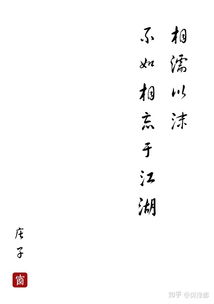 相濡以沫
不如相忘于江湖
庄子
知乎